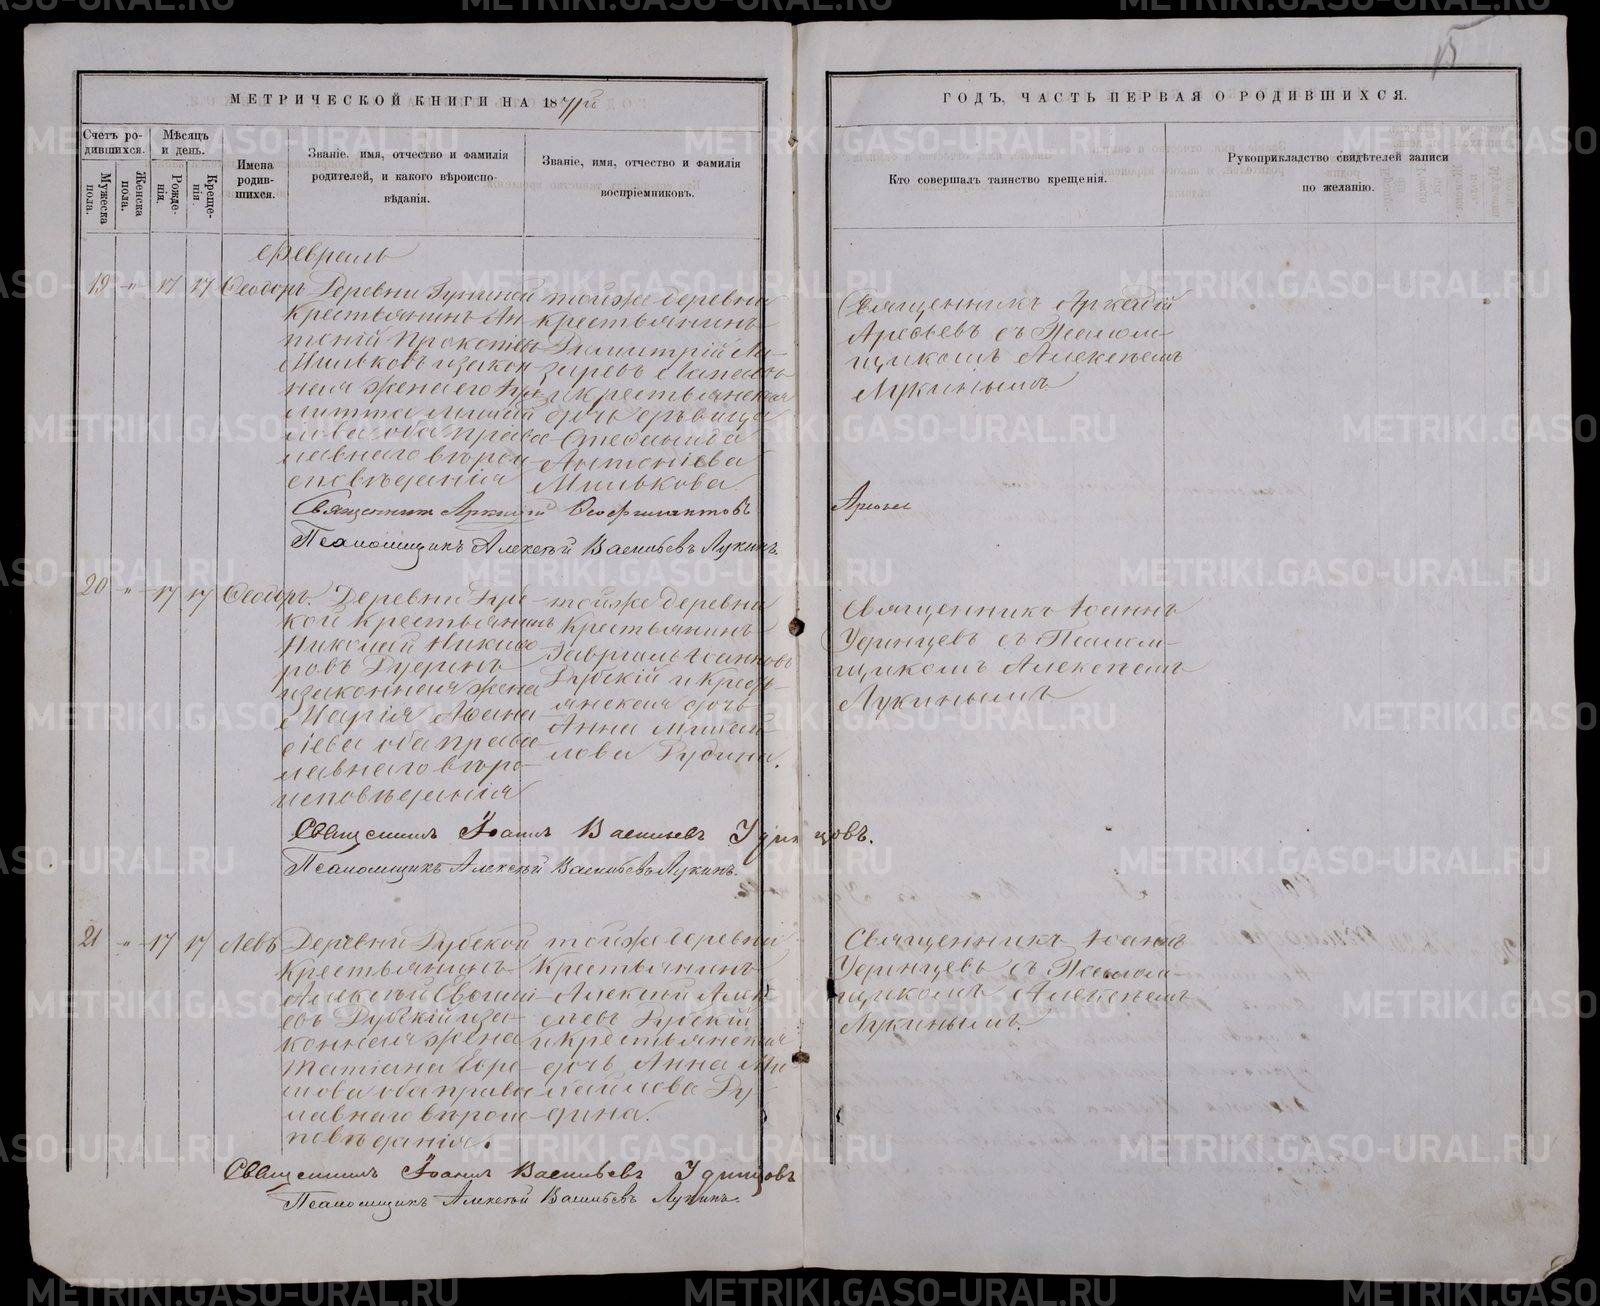 15
МЕТРИЧЕСКОЙ КНИГИ НА 1871й
ГОДЪ, ЧАСТЬ ПЕРВАЯ О РОДИВШИХСЯ.
Счетъ ро-
дившихся.
Мужеска
пола.
Женска
пола.
Мѣсяцъ
и день.
Рожде-
нія.
Креще-
нія.
Имена
родив-
шихся.
Званіе, имя, отчество и фамилія
родителей, и какого вѣроиспо-
вѣданія.
Званіе, имя, отчество и фамилія
воспріемниковъ.
Кто совершалъ таинство крещенія.
Рукоприкладство свидѣтелей записи
по желанію.
Февраль
19 " 17 17 Ѳеодоръ
Деревни
крестьянинъ Ан
тоній Прокопіевъ
Мильковъ и закон
ная жена его
Михай
лова оба право
славнаго вѣрои
сповѣданія
тойже деревни
крестьянинъ
Димитрій Ла-
заревъ
и крестьянская
дочь дѣвица
Стефанида
Антоніева
Милькова.
Священникъ Аркадій
Арефьевъ съ Псалом-
щикомъ Алексѣемъ
Лукинымъ
Священникъ Аркадій Ѳеофилактовъ
Арефье
Псаломщикъ Алексѣй Васильевъ Лукинъ.
20 " 17 17 Ѳеодоръ.
Деревни
кой Крестьянинъ
Николай Никифо
ровъ Дудинъ
и законная жена
Марія Аѳана
сіева оба право
славнаго вѣро-
исповѣданія
тойже деревни
Крестьянинъ
Гавріилъ Іоанновъ
Дубскій и кресть-
янская дочь
Анна Михай
лова Дудина.
Священникъ Іоаннъ
Удинцевъ съ Псалом-
щикомъ Алексѣемъ
Лукинымъ
Священникъ Іоаннъ Васильевъ Удинцовъ.
Псаломщикъ Алексѣй Васильевъ Лукинъ.
21 " 17 17 Левъ
Деревни Дубской
Крестьянинъ
Алексѣй
евъ Дубскій и за-
конная жена
Татіана Ефре-
мова оба право
славнаго вѣроис
повѣданія.
тойже деревни
Крестьянинъ
Алексѣй Алек
сѣевъ Дубскій
и крестьянская
дочь Анна Ми
хайлова Ду
дина.
Священникъ Іоаннъ
Удинцевъ съ Псалом-
щикомъ Алексѣемъ
Лукинымъ.
Священникъ Іоаннъ Васильевъ Удинцовъ
Псаломщикъ Алексѣй Васильевъ Лукинъ.
METRIKI.GASO-URAL.RU